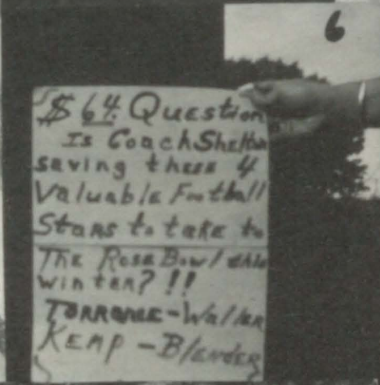 6
$64. Question
Is Coach Shelton
saving these 4
Valuable Football
Stars to take to
The Rose Bowl this
winter? !!
Torrance-Waller
Kemp-Blender